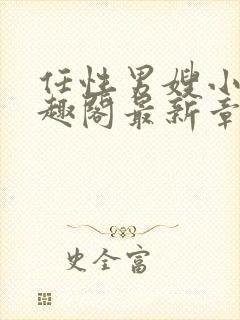 任性男嫂小
趣阁最新章
史全富